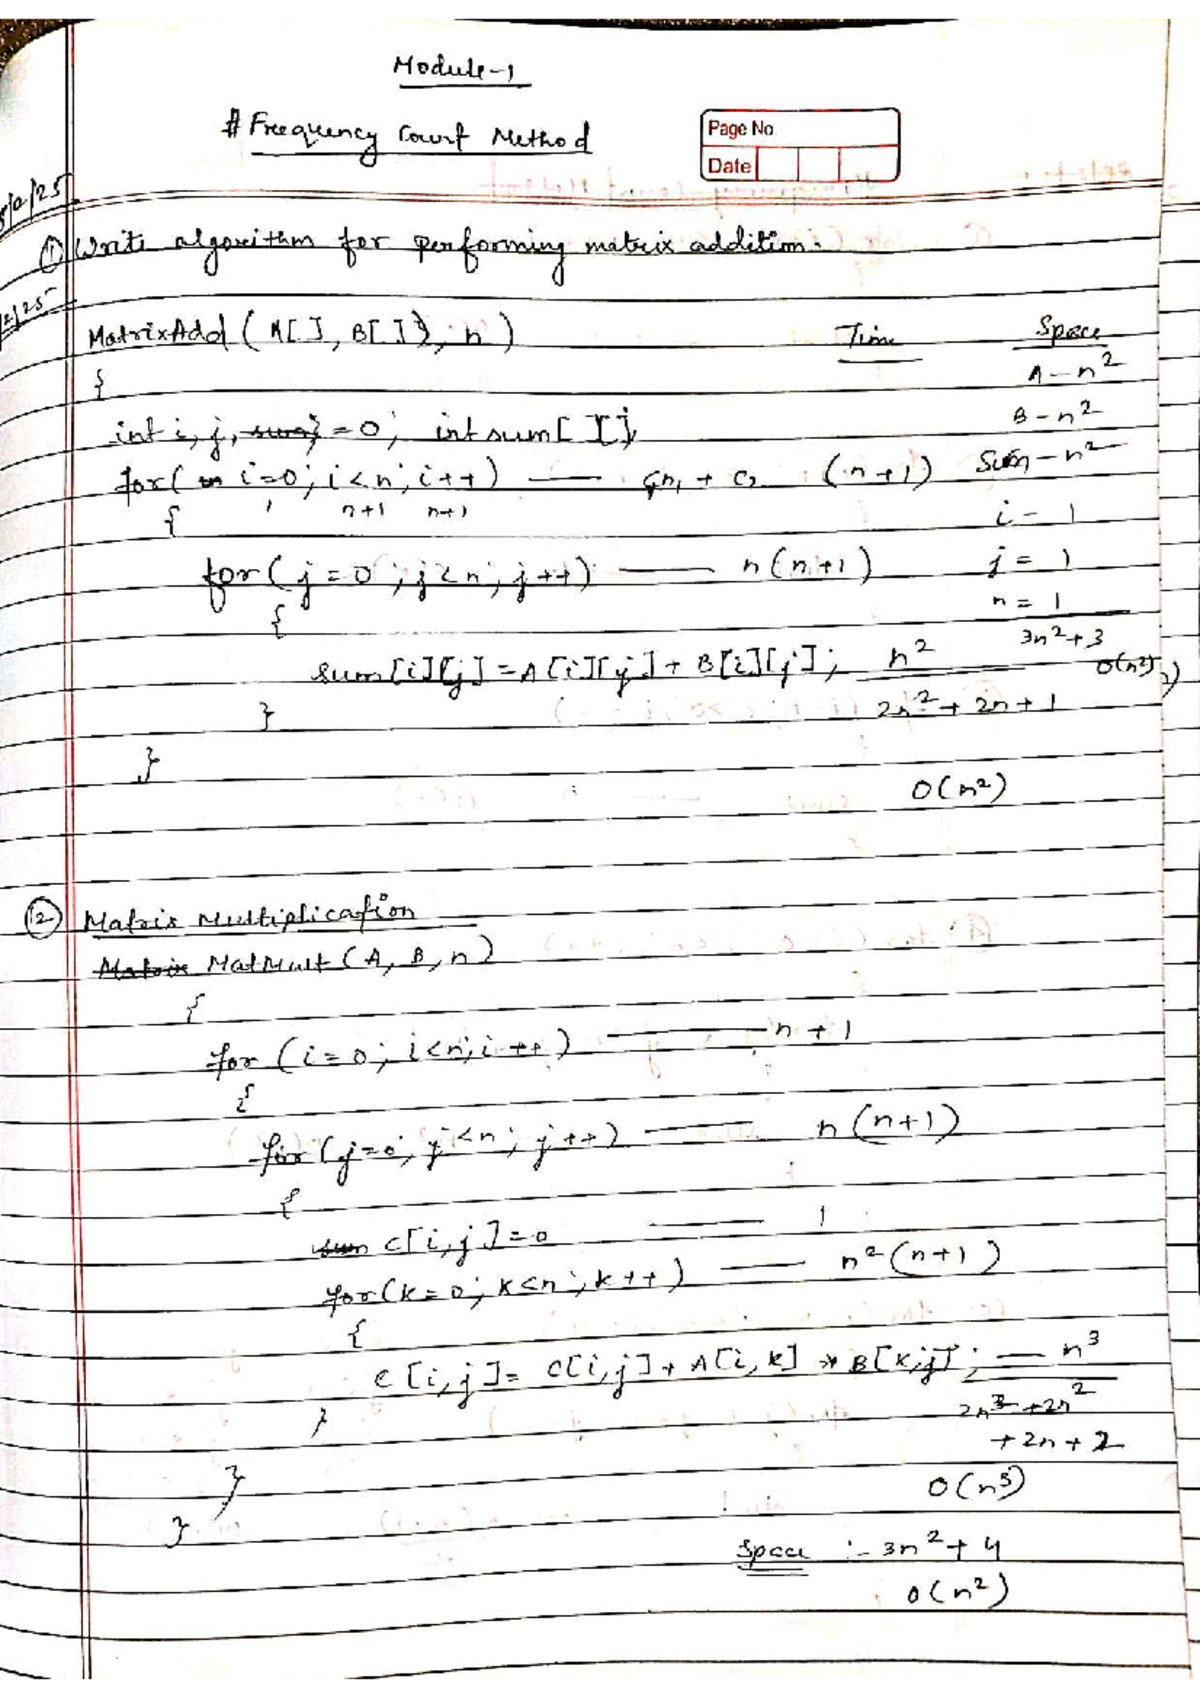 Module-1
# Frequency Count Method
Page No
Date
① Write algorithm for performing matrix addition.
MatrixAdd (A[], B[], n) Time Space
{ A - n²
int i, j, = 0; int sum[][]; B - n²
for( i=0; i<n; i++) (n+1) Sum - n²
1 n+1 n+1
{ i - 1
for(j=0; j<n; j++) n(n+1) j = 1
{ n = 1
3n²+3
sum[i][j] = A[i][j] + B[i][j]; n² O(n²)
} 2n²+2n+1
}
O(n²)
② Matrix Multiplication
Matrix MatMult (A, B, n)
{
for (i=0; i<n; i++) n+1
{
for (j=0; j<n; j++) n(n+1)
{
sum C[i,j]=0 1
for(k=0; k<n; k++) n²(n+1)
{
C[i,j]= C[i,j]+ A[i,k] * B[k,j]; n³
} 2n³+2n²
+2n+2
} O(n³)
}
Space :- 3n²+4
O(n²)